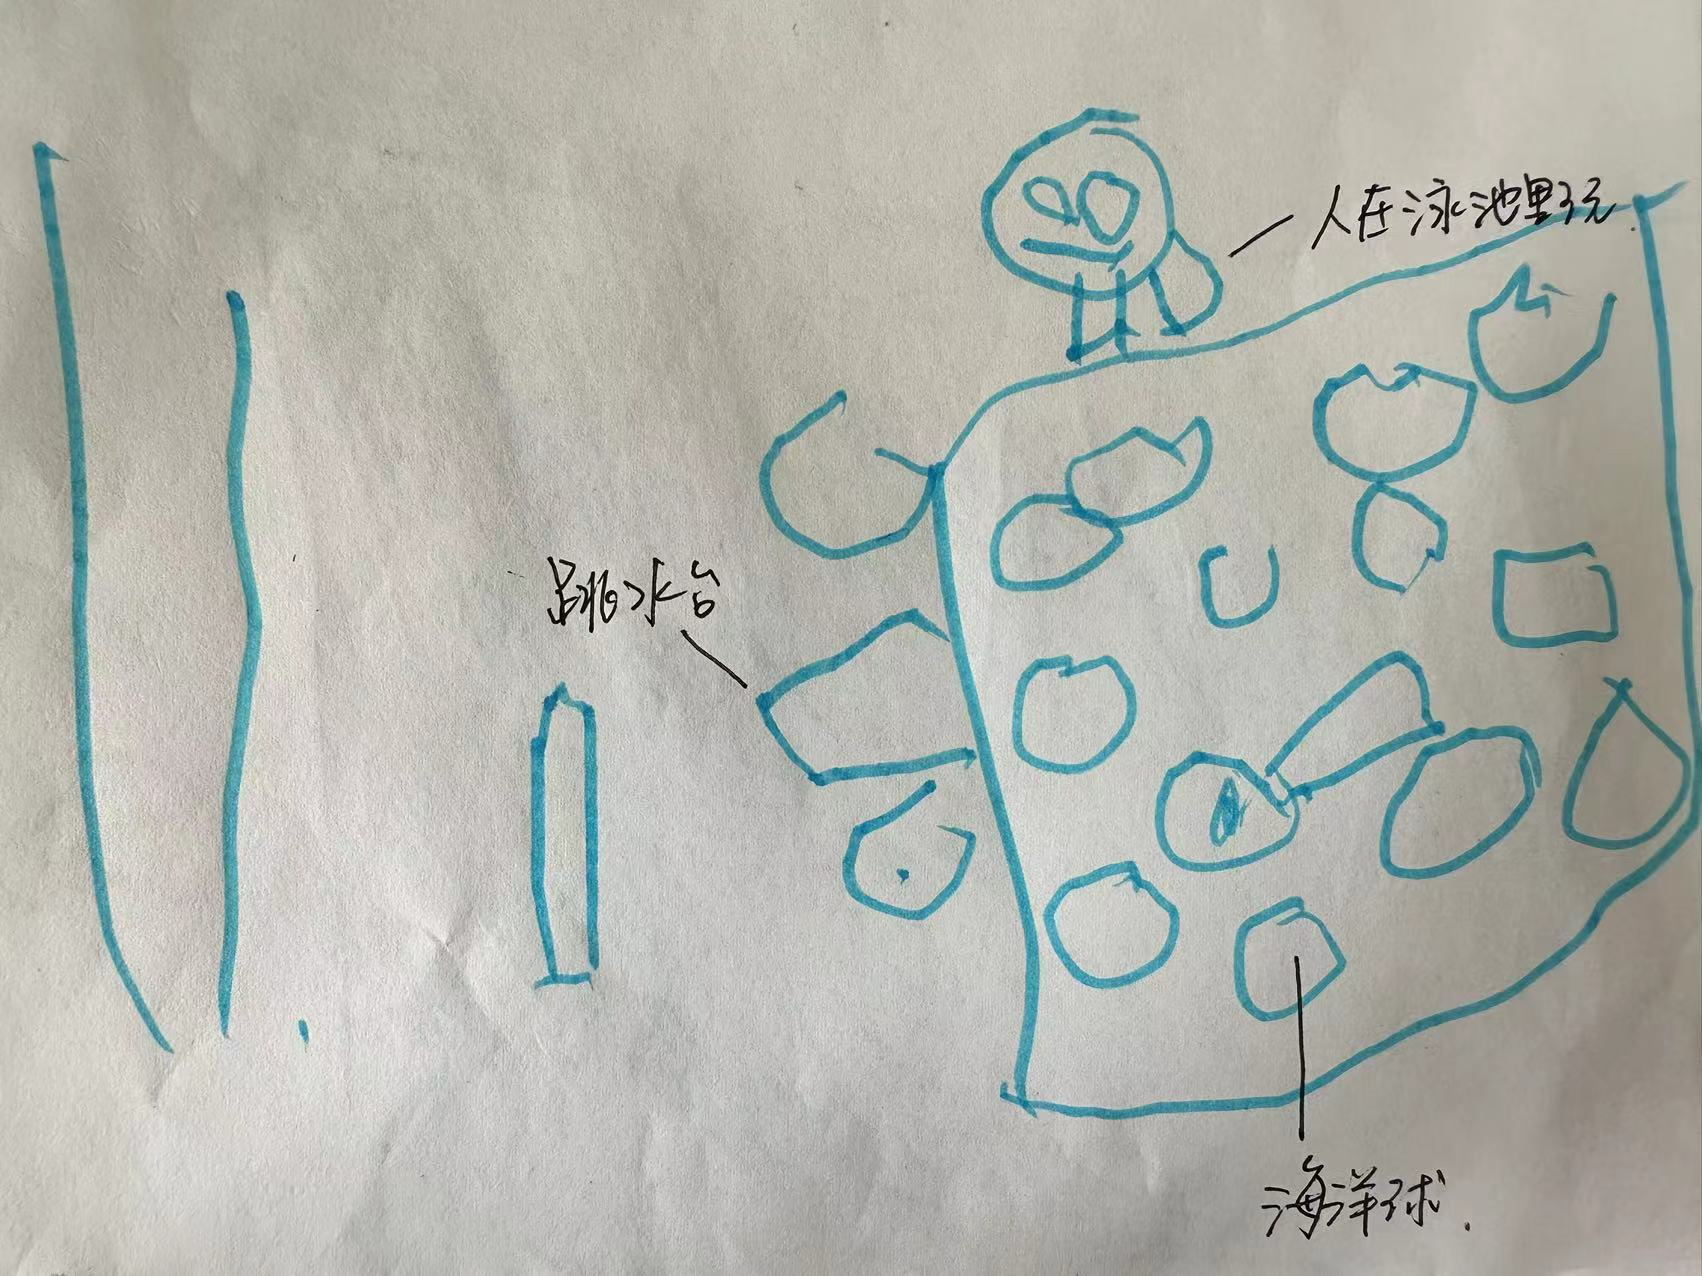 人在泳池里玩.
跳水台
海洋球.